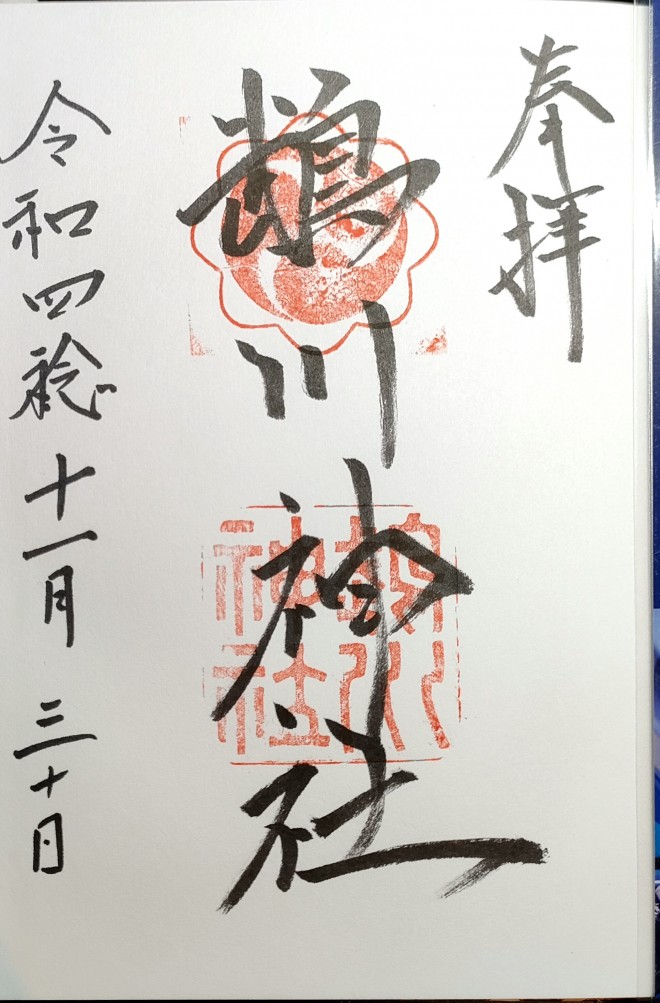 奉拝
川神社
川
神社
令和四稔十一月三十日